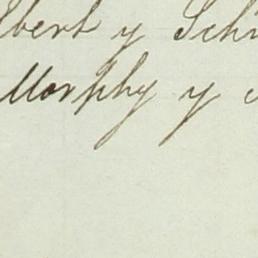 lbert y Schu
Murphy y